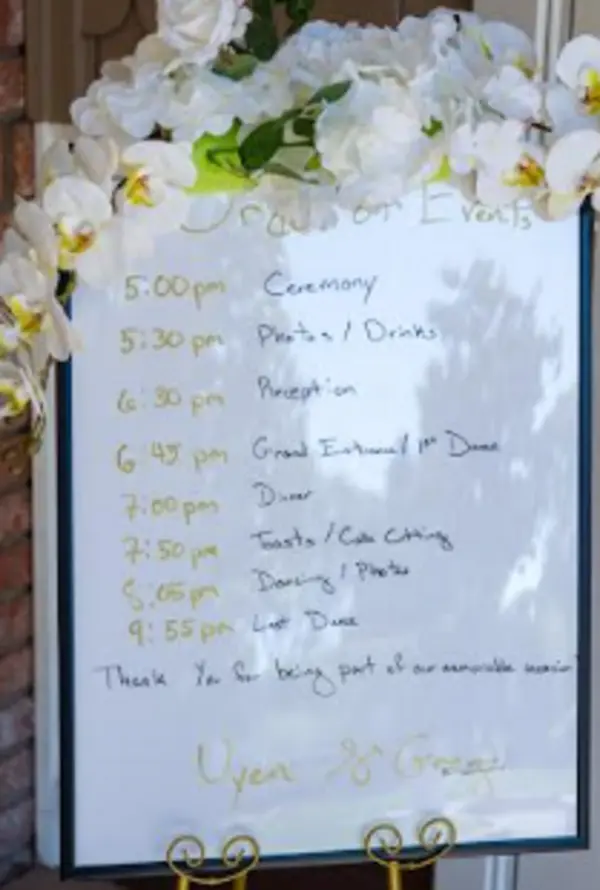 Order of Events
5:00 pm Ceremony
5:30 pm Photos / Drinks
6:30 pm Reception
6:45 pm Grand Entrance / 1st Dance
7:00 pm Dinner
7:50 pm Toasts / Cake Cutting
8:05 pm Dancing / Photos
9:55 pm Last Dance
Thank You for being part of our memorable occasion!
Uyen & Gregg